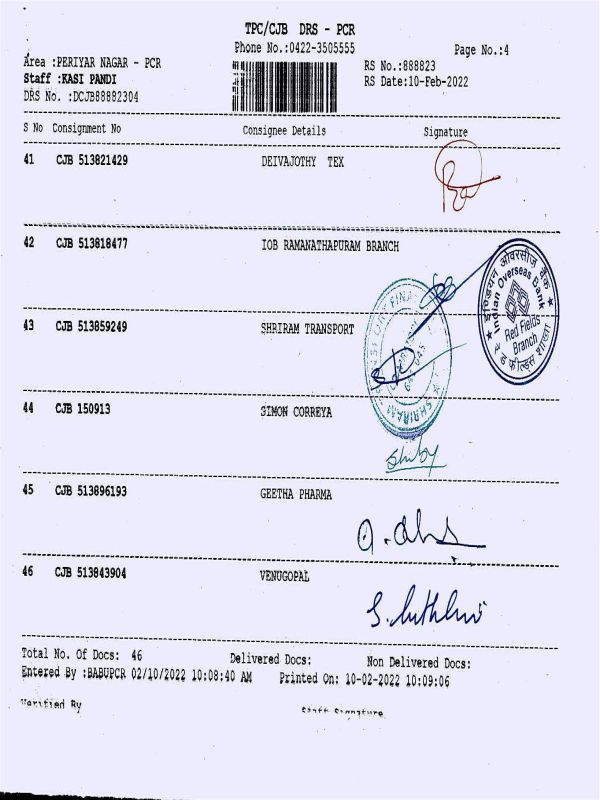 TPC/CJB DRS - PCR
Phone No.:0422-3505555
Page No.:4
Area :PERIYAR NAGAR - PCR
RS No.:888823
Staff :KASI PANDI
RS Date:10-Feb-2022
DRS No. :DCJB88882304
S No Consignment No Consignee Details Signature
41 CJB 513821429 DEIVAJOTHY TEX
42 CJB 513818477 IOB RAMANATHAPURAM BRANCH
इण्डियन ओवरसीज़ बैंक
Indian Overseas Bank
Red Fields
Branch
रेड फील्ड्स शाखा
43 CJB 513859249 SHRIRAM TRANSPORT
SHRIRAM
44 CJB 150913 SIMON CORREYA
45 CJB 513896193 GEETHA PHARMA
46 CJB 513843904 VENUGOPAL
Total No. Of Docs: 46 Delivered Docs: Non Delivered Docs:
Entered By :BABUPCR 02/10/2022 10:08:40 AM Printed On: 10-02-2022 10:09:06
Verified By Staff Signature